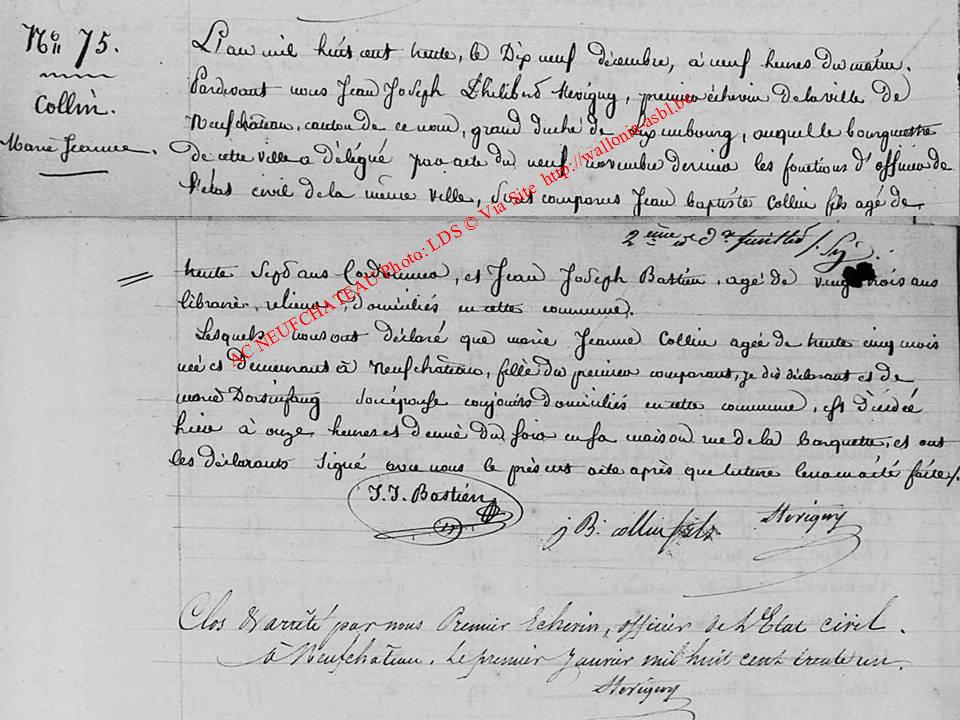 No 75.
Collin.
Marie Jeanne.
L'an mil huit cent trente, le Dix neuf décembre, à neuf heures du matin.
Pardevant nous Jean Joseph Philibert Stevigny, premier échevin de la ville de
Neufchâteau, canton de ce nom, grand duché de Luxembourg, auquel le bourguestre
de cette ville a délégué par acte du neuf novembre dernier les fonctions d'officier de
l'état civil de la même ville, sont comparus Jean baptiste Collin fils agé de
2ème et dr feuillet /. Sy
trente Sept ans Cordonnier, et Jean Joseph Bastien, agé de vingt trois ans
libraire, relieur, domiciliés en cette commune.
Lesquels nous ont déclaré que marie Jeanne Collin agée de trente cinq mois
née et demeurant à Neufchâteau, fille du premier comparant, je dis déclarant et de
marie Dorsinfang son épouse conjoints domiciliés en cette commune, est décédée
hier à onze heures et demie du soir en sa maison rue de la barquette, et ont
les déclarants signé avec nous le présent acte après que lecture leur a été faite /.
J. J. Bastien
j B. collin fils
Stevigny
Clos & arrêté par nous Premier Echevin, officier de l'Etat civil.
à Neufchateau. Le premier Janvier mil huit cent trente un.
Stevigny
AC NEUFCHATEAU Photo: LDS © Via Site http://wallonia-asbl.be